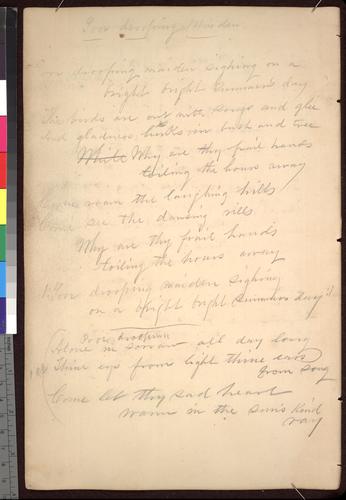 Poor drooping Maiden
Poor drooping maiden sighing on a
bright bright Summer's day
The birds are out with songs and glee
And gladness lurks in bush and tree
While Why are thy frail hands
toiling the hours away
Come roam the laughing hills
Come see the dancing rills
Why are thy frail hands
Toiling the hours away
Poor drooping maiden sighing
on a bright bright Summers Day
Poor drooping
Alone in sorrow all day long
Thine eyes from light thine ears
from song
Come let thy sad heart
warm in the sun's kind
ray